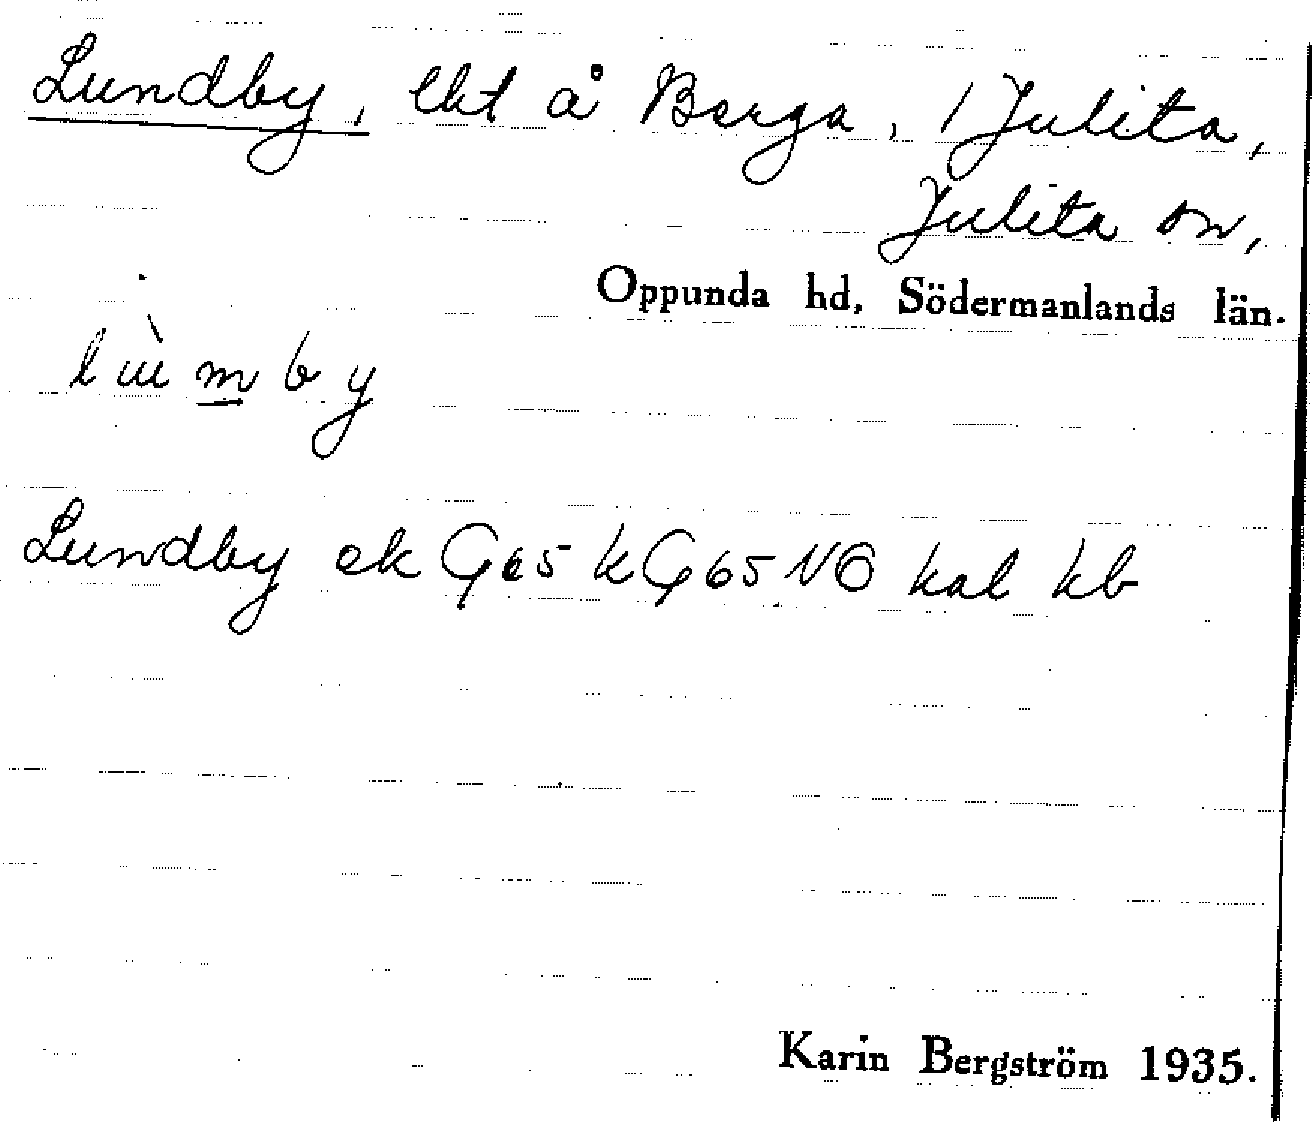 Lundby, lht å Berga, 1 Julita,
Julita sn,
Oppunda hd, Södermanlands län.
lùmby
Lundby ek G65 kG65NO kal kb
Karin Bergström 1935.